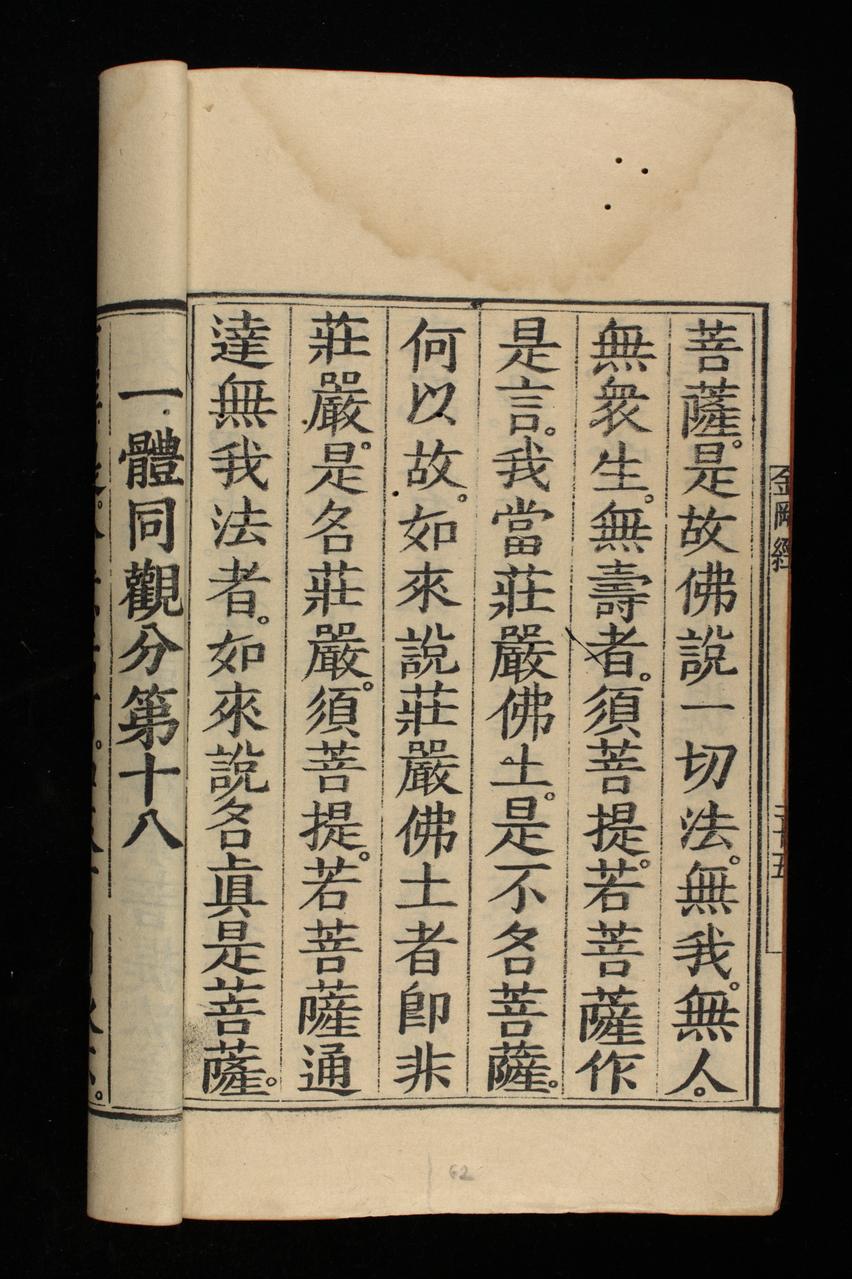 菩薩。是故佛說一切法。無我。無人。
無衆生。無壽者。須菩提。若菩薩作
是言。我當莊嚴佛土。是不名菩薩。
何以故。如來說莊嚴佛土者即非
莊嚴。是名莊嚴。須菩提。若菩薩通
達無我法者。如來說名眞是菩薩。
一體同觀分第十八
金剛經
二十五
62